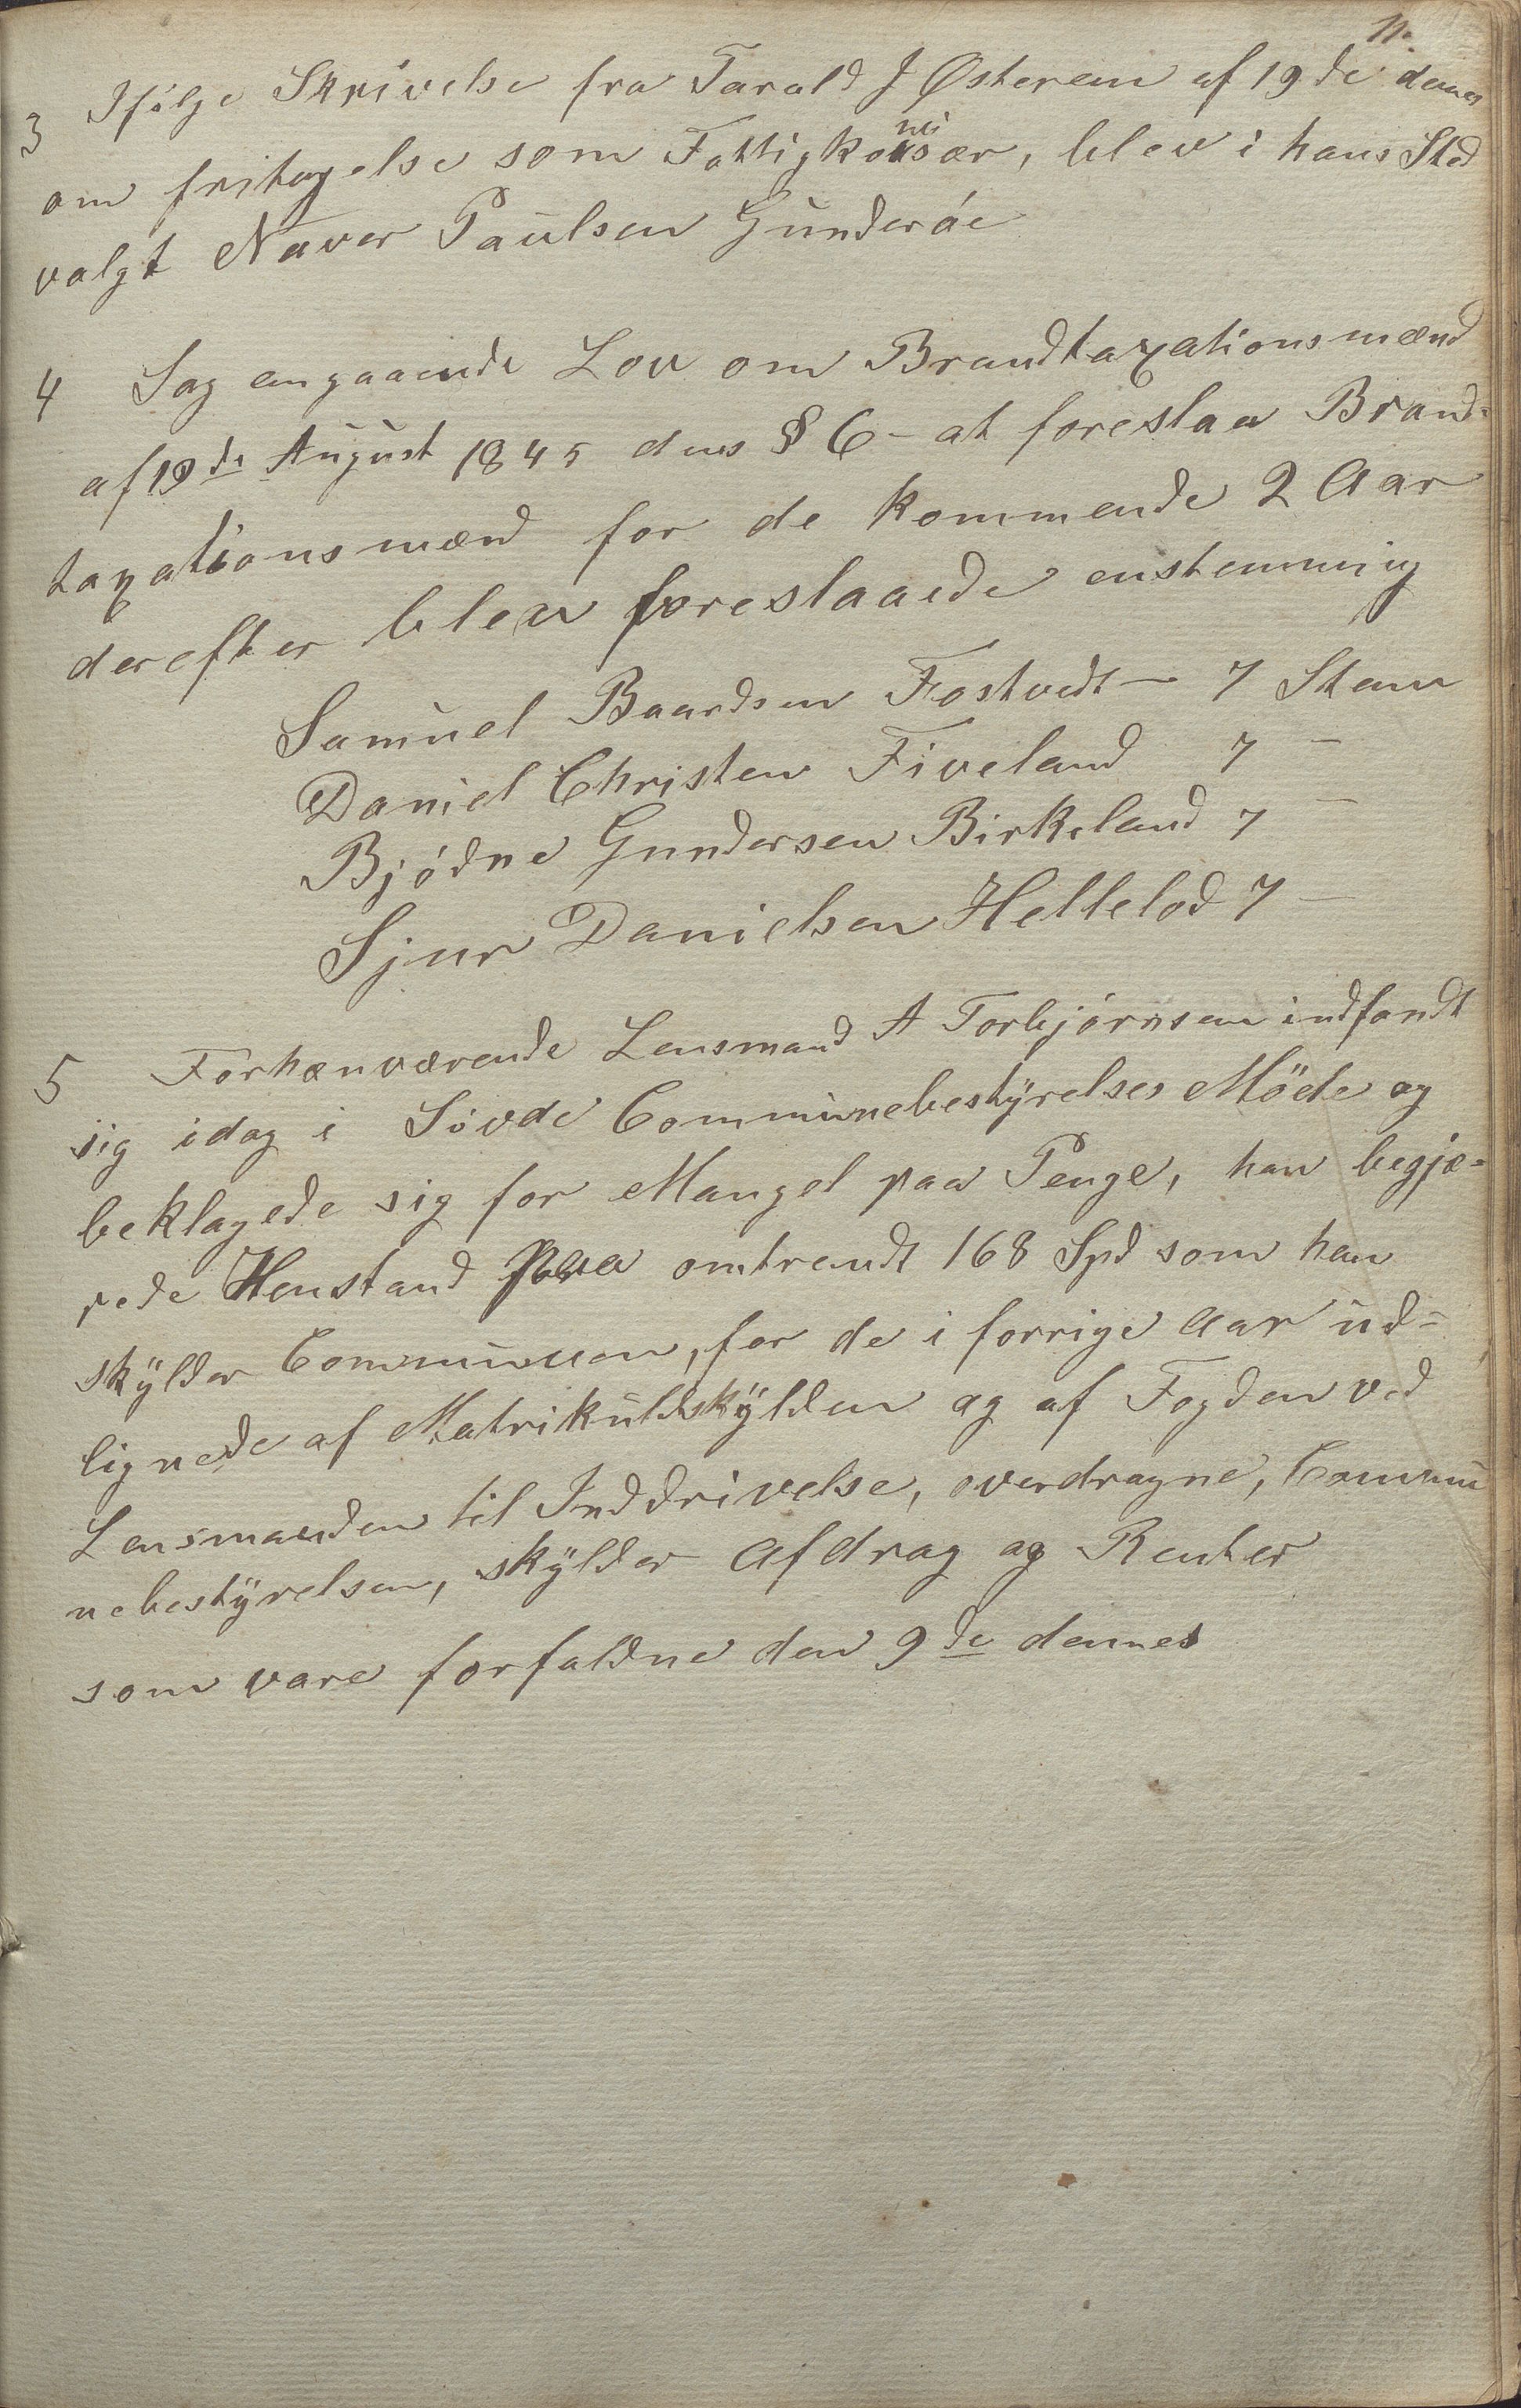 11.
3 Ifølge Skrivelse fra Tarald J Østerem af 19de dennes
om fritagelse som Fattigkomisær, blev i hans Sted
valgt Naver Paulsen Gunderöe
4 Sag angaaende Lov om Brandtaxationsmænd
af 19de August 1845 dens § 6 - at foreslaa Brand-
taxationsmænd for de kommende 2 Aar
derefter blev foreslaaede enstemmig
Samuel Baardsen Fostvedt - 7 Stem
Daniel Christen Fiveland 7 -
Bjødne Gundersen Birkeland 7 -
Sjur Danielsen Hellelod 7 -
5 Forhenværende Lensmand A Torbjørnsen indfandt
sig idag i Søvde Communebestyrelses Møde og
beklagede sig for Mangel paa Penge, han begjæ-
rede Henstand paa omtrendt 168 Spd som han
skylder Communen, for de i forrige Aar ud-
lignede af Matrikuldskylden og af Fogden ved
Lensmanden til Inddrivelse, overdragne, Commu
nebestyrelsen, skylder Afdrag og Renter
som vare forfaldne den 9de dennes